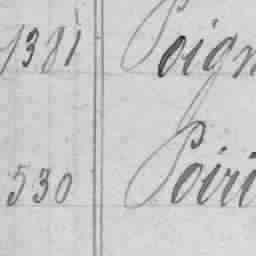 1381 Poign
530 Poiri